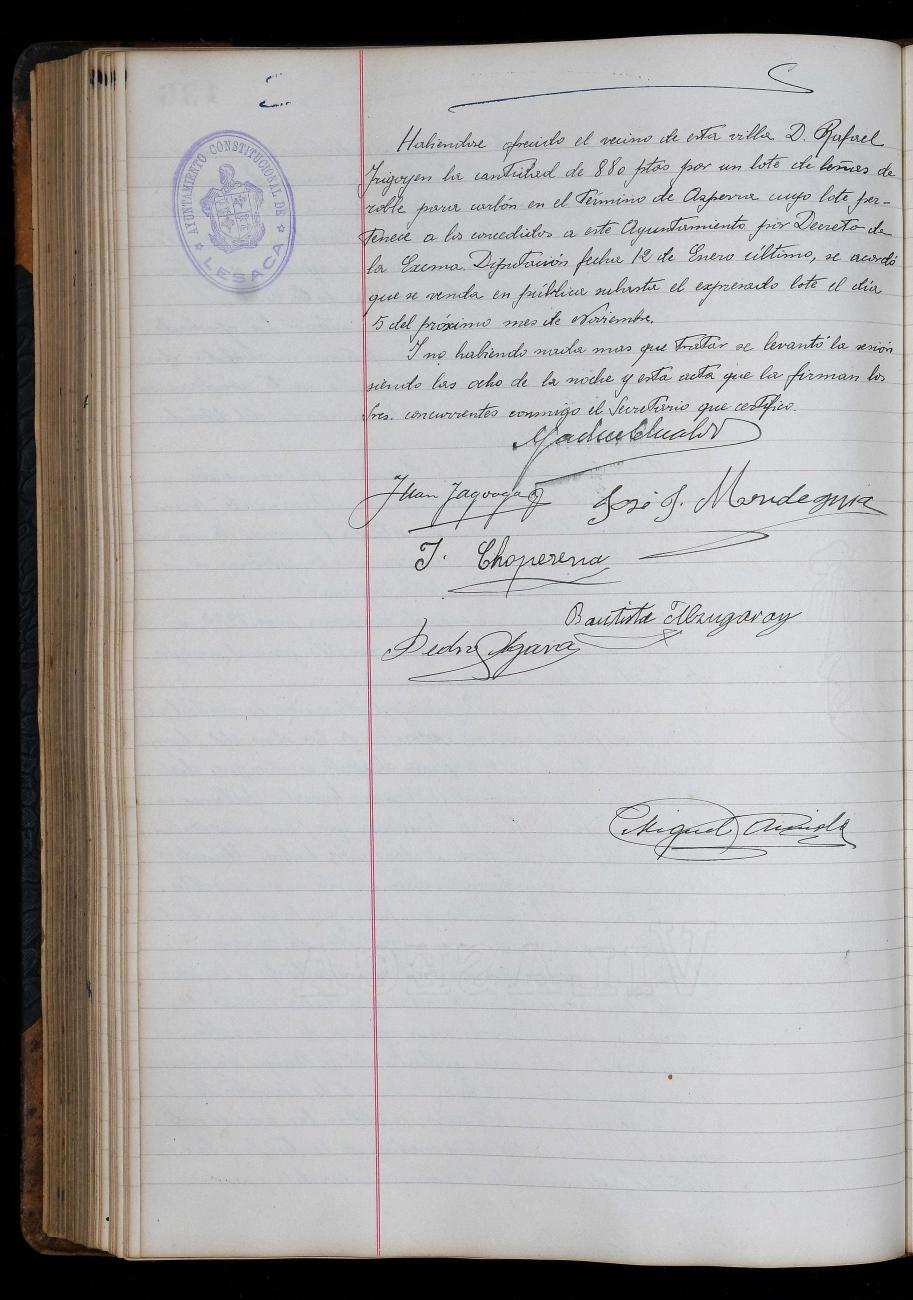 AYUNTAMIENTO CONSTITUCIONAL DE
LESACA
Habiendose ofrecido el vecino de esta villa D. Rafael
Irigoyen la cantidad de 880 ptas por un lote de leñas de
roble para carbón en el Término de Asperra cuyo lote per-
tenece a los concedidos a este Ayuntamiento por Decreto de
la Excma. Diputación fecha 12 de Enero último, se acordó
que se venda en pública subasta el expresado lote el día
5 del próximo mes de Noviembre.
Y no habiendo nada mas que tratar se levantó la sesión
siendo las ocho de la noche y esta acta que la firman los
Sres. concurrentes conmigo el Secretario que certifico.
Juan
José J. Mendeguia
J. Choperena
Bautista Ubzugaray
Pedro
Miguel
VILASECA